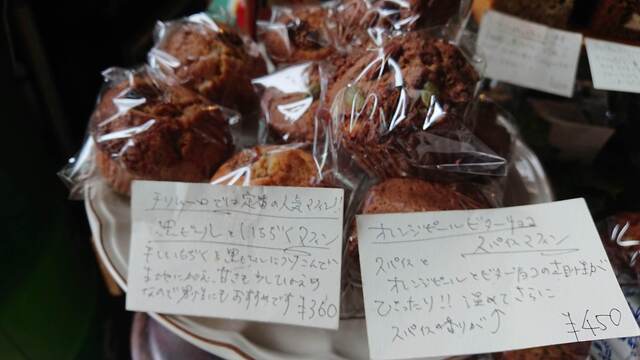 チリムーロでは定番の人気マフィン!!
黒ビールといちぢくマフィン
干しいちぢくを黒ビールにつけこんで
生地に加え、甘さを少しひかえめ
なので男性にもおすすめです ¥360
オレンジピールビターチョコ
スパイスマフィン
スパイスと
オレンジピールとビターチョコの相性が
ぴったり!! 温めてさらに
スパイスの香りが↑
¥450